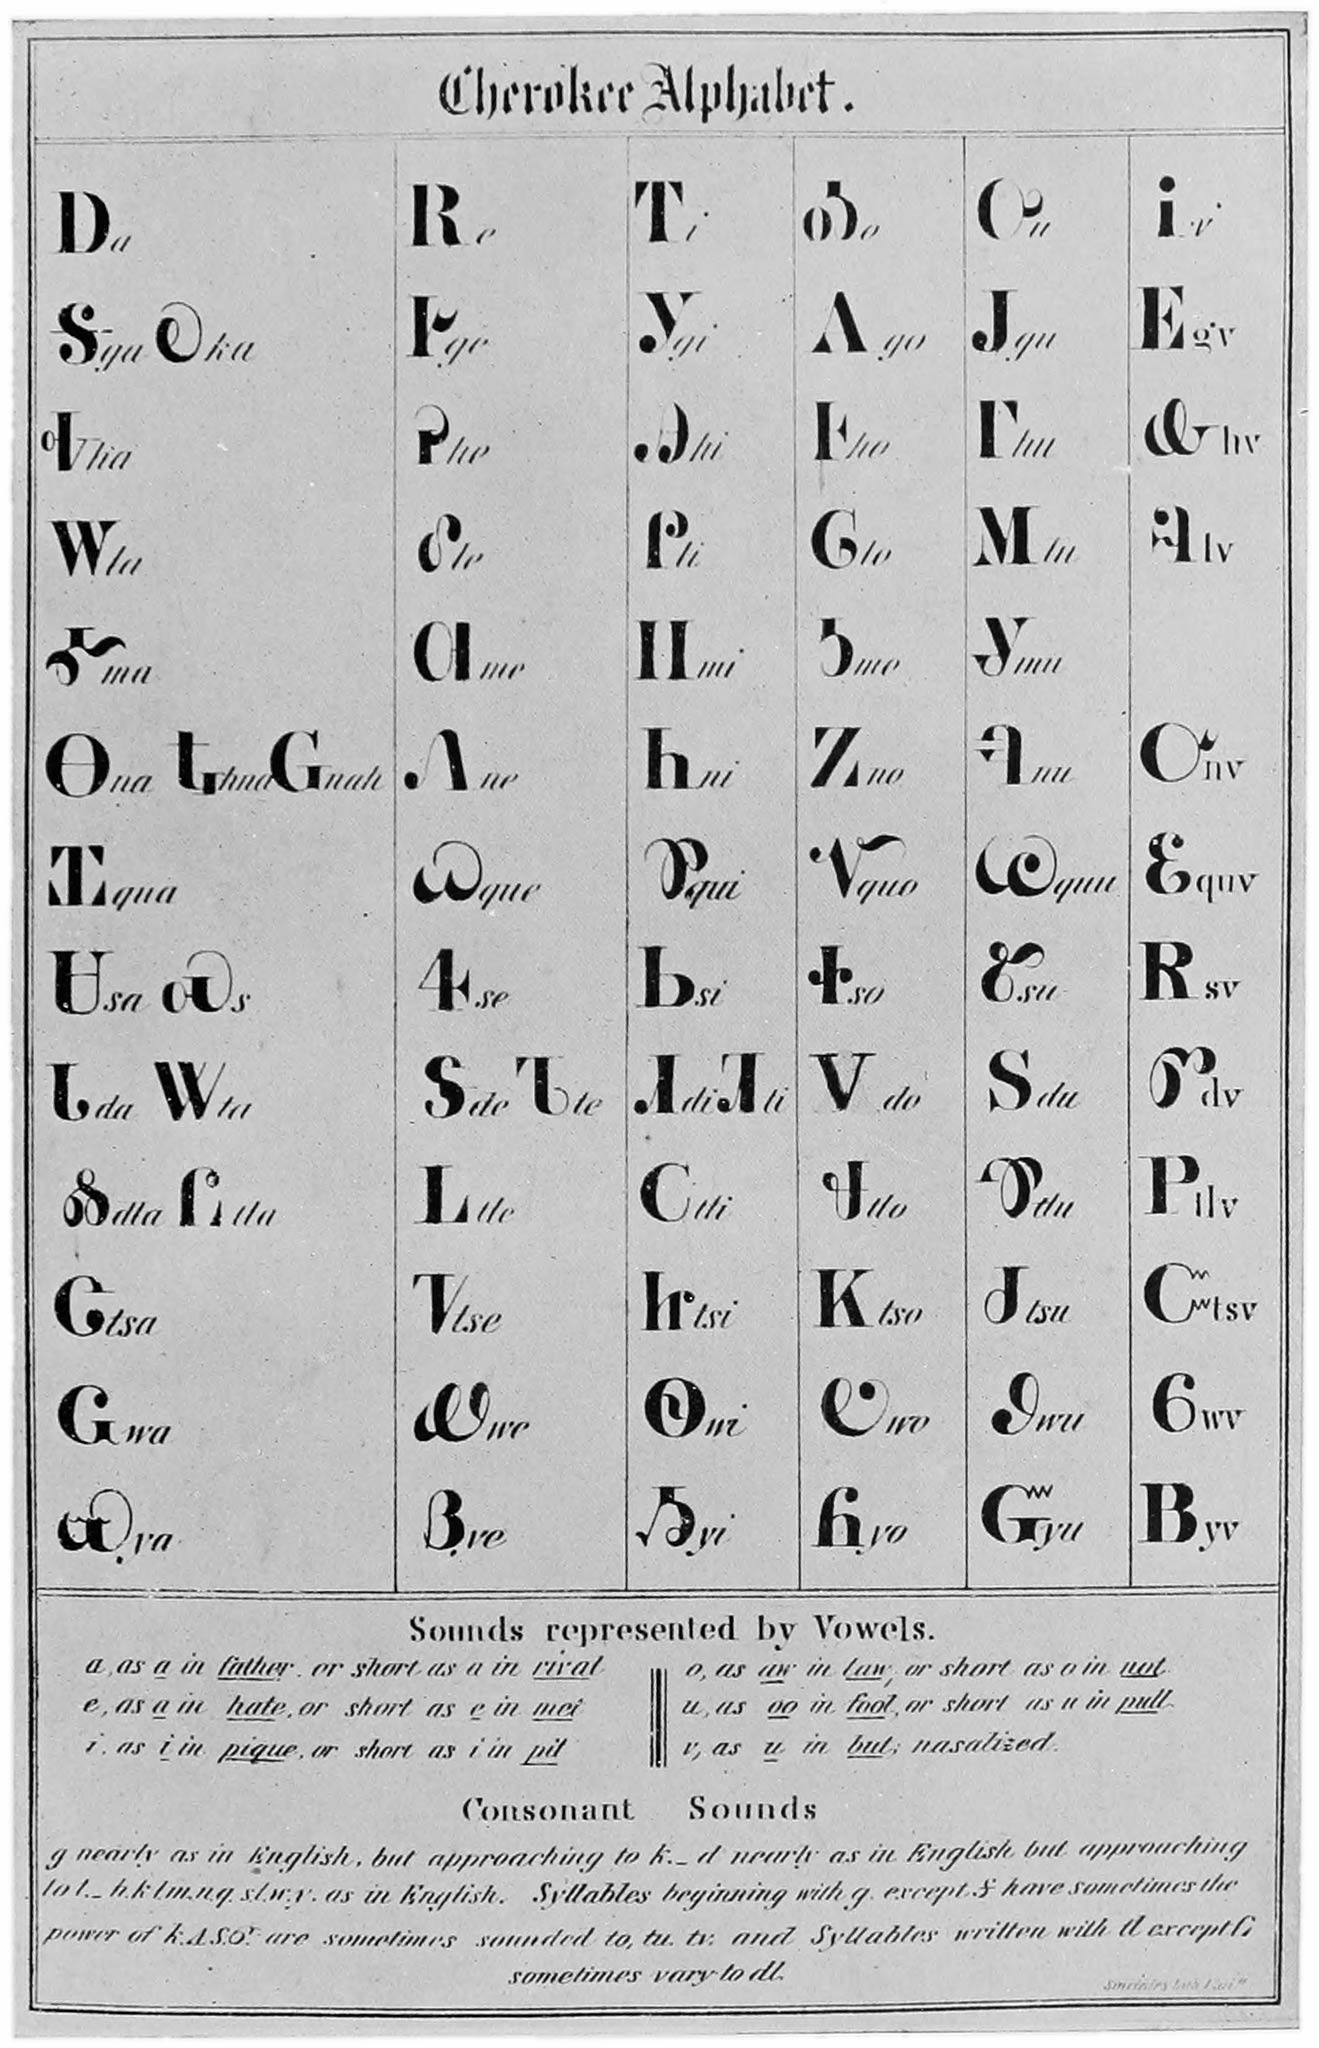 Cherokee Alphabet.
Ꭰ a Ꭱ e Ꭲ i Ꭳ o Ꭴ u Ꭵ v
Ꭶ ga Ꭷ ka Ꭸ ge Ꭹ gi Ꭺ go Ꭻ gu Ꭼ gv
Ꭽ ha Ꭾ he Ꭿ hi Ꮀ ho Ꮁ hu Ꮂ hv
Ꮃ la Ꮄ le Ꮅ li Ꮆ lo Ꮇ lu Ꮈ lv
Ꮉ ma Ꮊ me Ꮋ mi Ꮌ mo Ꮍ mu
Ꮎ na Ꮏ hna Ꮐ nah Ꮑ ne Ꮒ ni Ꮓ no Ꮔ nu Ꮕ nv
Ꮖ qua Ꮗ que Ꮘ qui Ꮙ quo Ꮚ quu Ꮛ quv
Ꮜ sa Ꮝ s Ꮞ se Ꮟ si Ꮠ so Ꮡ su Ꮢ sv
Ꮣ da Ꮤ ta Ꮥ de Ꮦ te Ꮧ di Ꮨ ti Ꮩ do Ꮪ du Ꮫ dv
Ꮬ dla Ꮭ tla Ꮮ tle Ꮯ tli Ꮰ tlo Ꮱ tlu Ꮲ tlv
Ꮳ tsa Ꮴ tse Ꮵ tsi Ꮶ tso Ꮷ tsu Ꮸ tsv
Ꮹ wa Ꮺ we Ꮻ wi Ꮼ wo Ꮽ wu Ꮾ wv
Ꮿ ya Ᏸ ye Ᏹ yi Ᏺ yo Ᏻ yu Ᏼ yv
Sounds represented by Vowels.
a, as a in father, or short as a in rival
e, as a in hate, or short as e in met
i, as i in pique, or short as i in pit
o, as aw in law, or short as o in not
u, as oo in fool, or short as u in pull
v, as u in but; nasalized.
Consonant Sounds
g nearly as in English, but approaching to k._ d nearly as in English but approaching
to t._ h.k.l.m.n.q.s.t.w.y. as in English. Syllables beginning with g. except Ꭶ have sometimes the
power of k. are sometimes sounded to, tu. tv. and Syllables written with tl except Ꮭ
sometimes vary to dl.